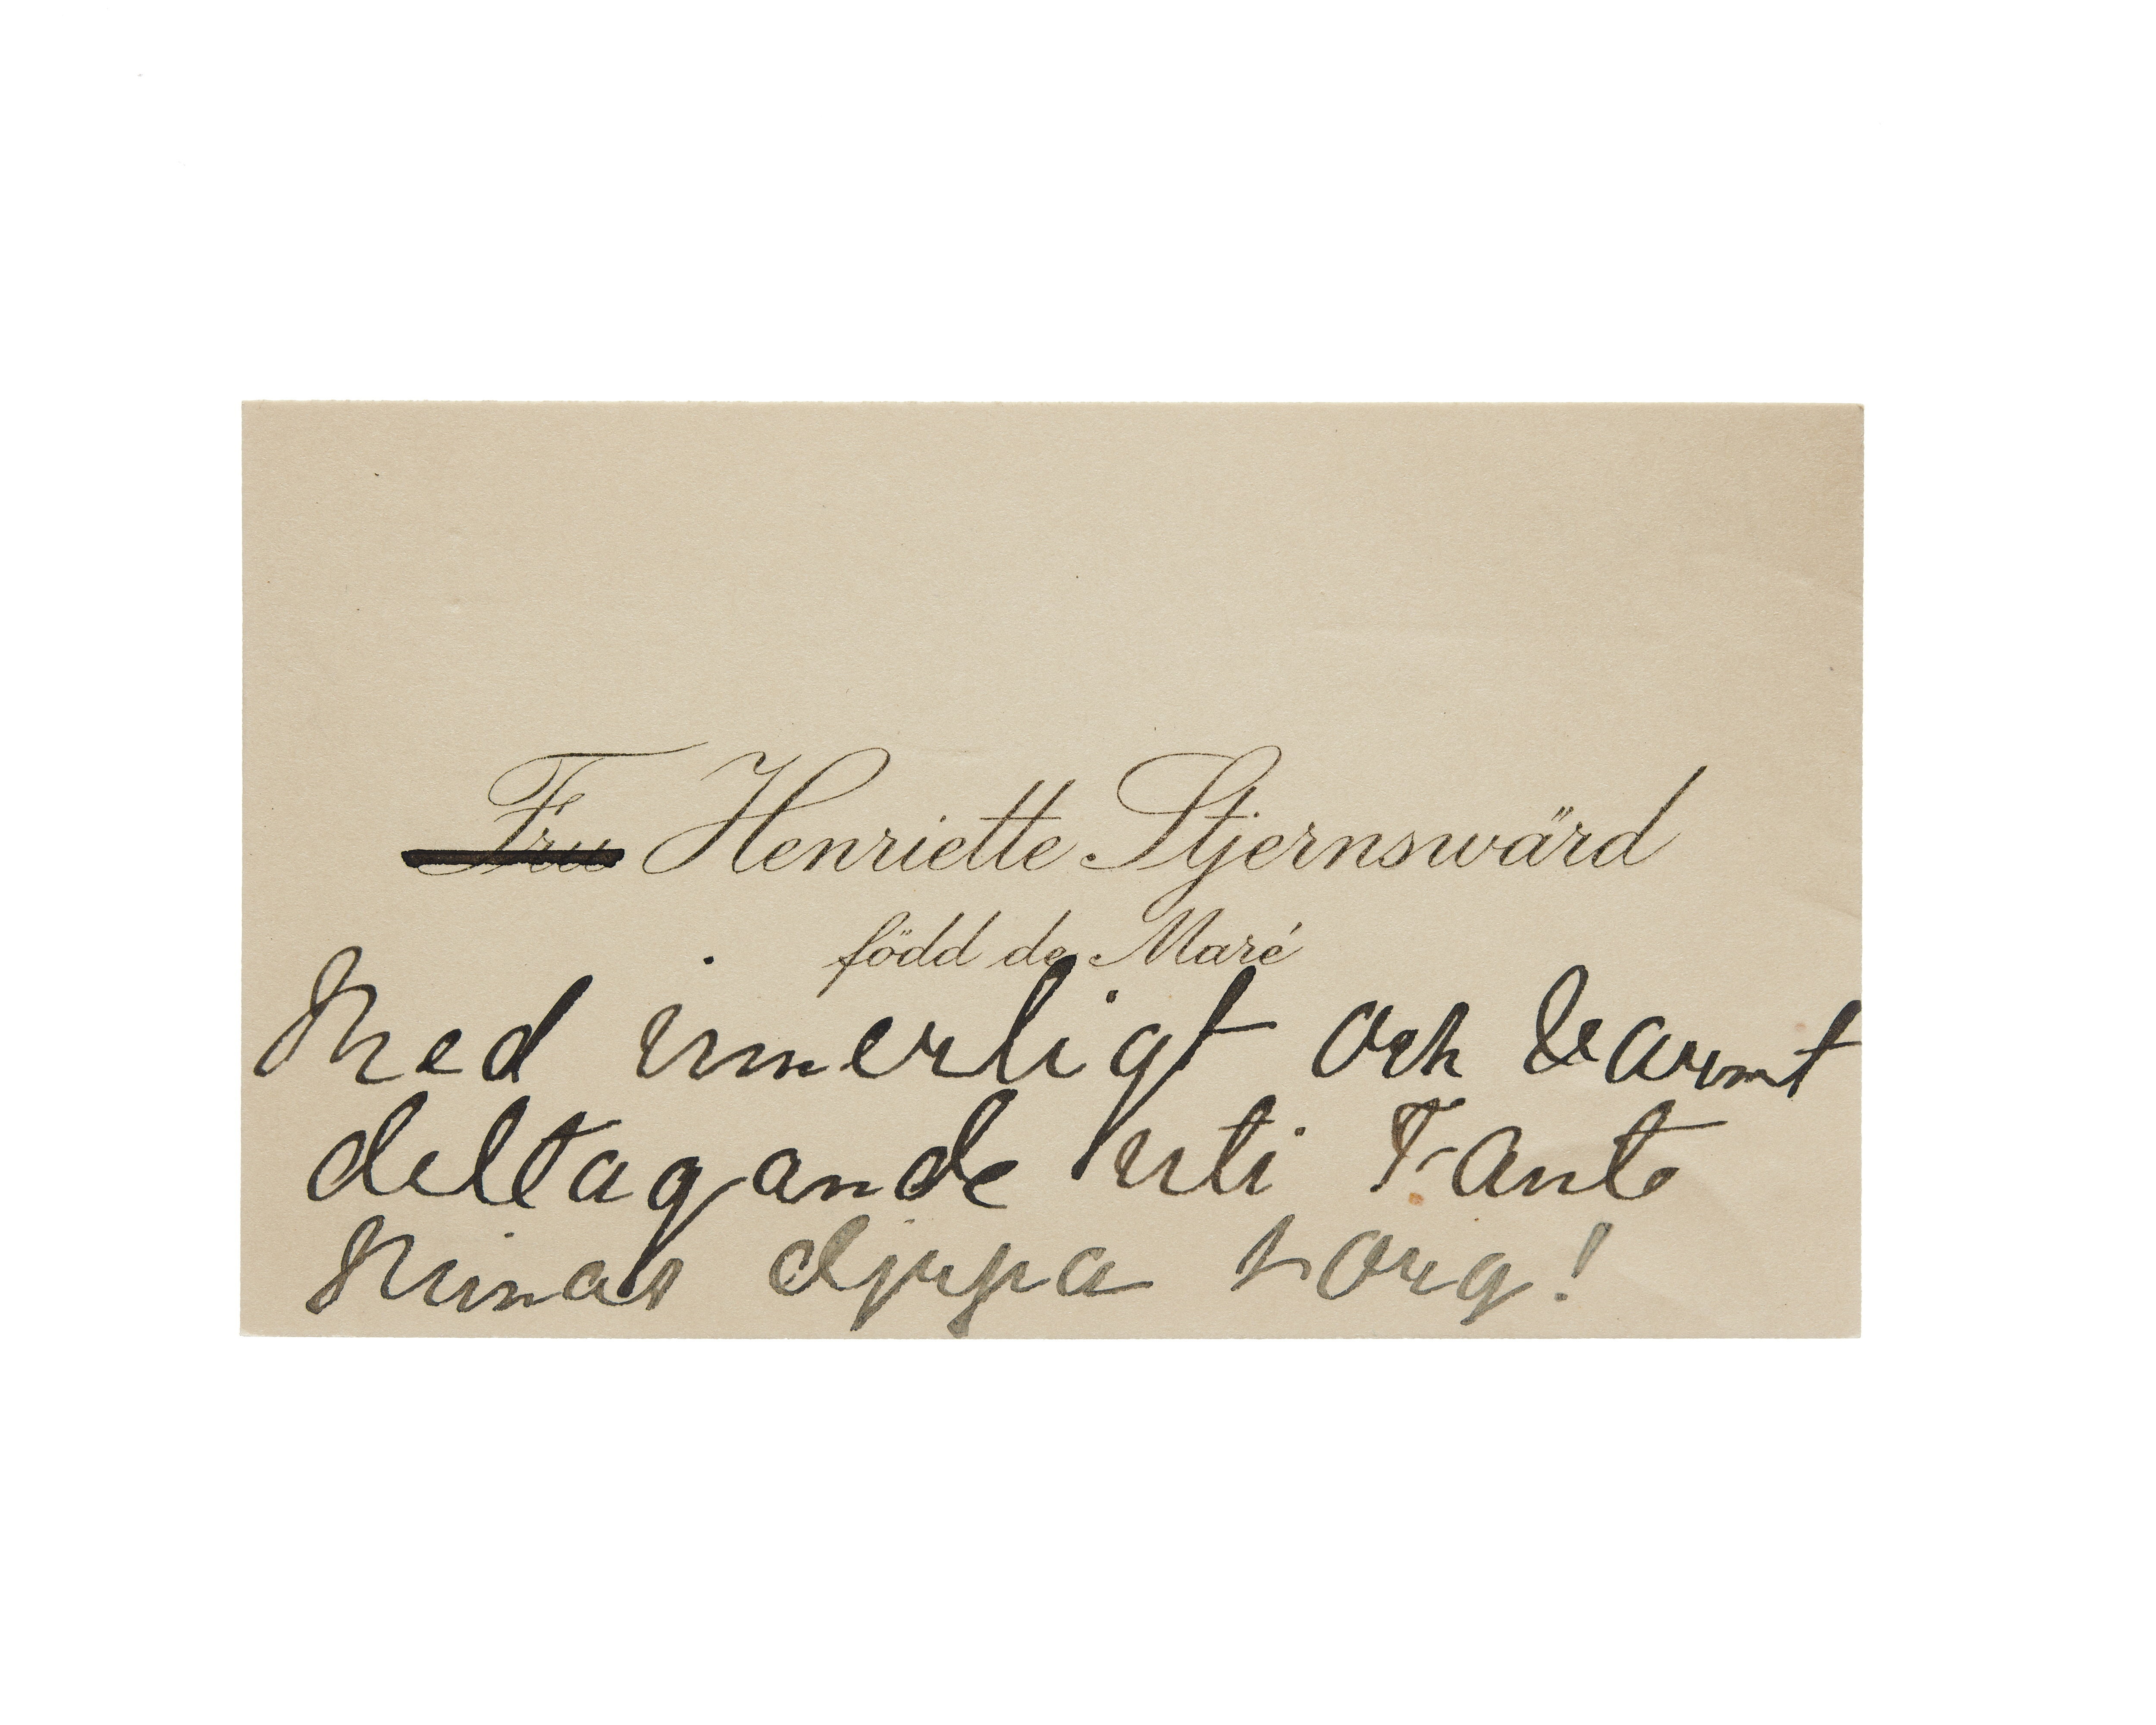 Fru Henriette Stjernswärd
född de Maré
Med innerligt och varmt
deltagande uti Tante
Ninas djupa sorg!